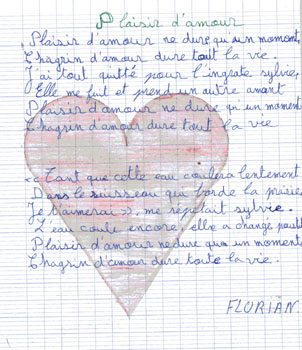 Plaisir d'amour
Plaisir d'amour ne dure qu'un moment,
Chagrin d'amour dure tout la vie.
J'ai tout quitté pour l'ingrate sylvie,
Elle me fuit et prend un autre amant
Plaisir d'amour ne dure qu'un moment
Chagrin d'amour dure tout la vie
« Tant que cette eau coulera lentement
Dans le ruisseau qui borde la prairie,
Je t'aimerai », me répétait sylvie.
L'eau coule encore, elle a changé
Plaisir d'amour ne dure qu'un moment
Chagrin d'amour dure toute la vie.
FLORIAN.